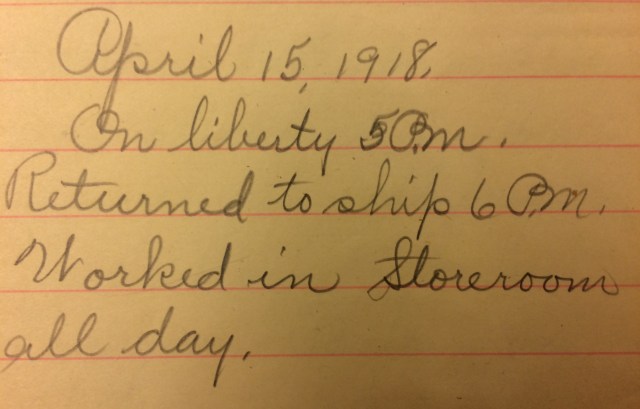 April 15, 1918.
On liberty 5 P.m.
Returned to ship 6 P.m.
Worked in Storeroom
all day.